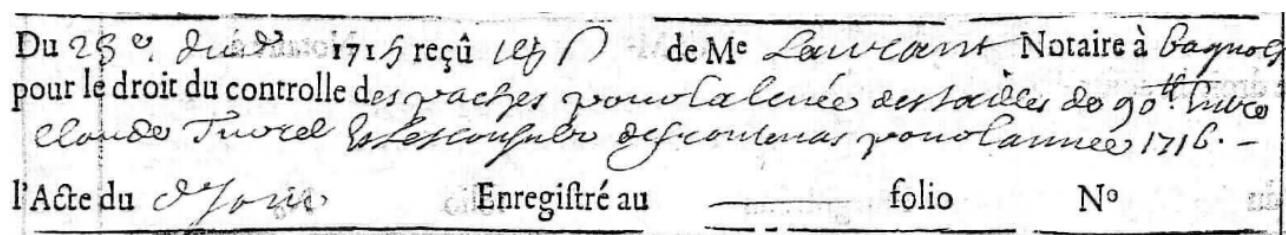 Du 23e. dud. 1715 reçû 12s de Me Laurant Notaire à bagnols
pour le droit du controlle des paches pour la levée des tailles de 90tt Entre
claude Turrel Et les consuls de pour l'annee 1716. -
l'Acte du dt jour Enregiſtré au folio No